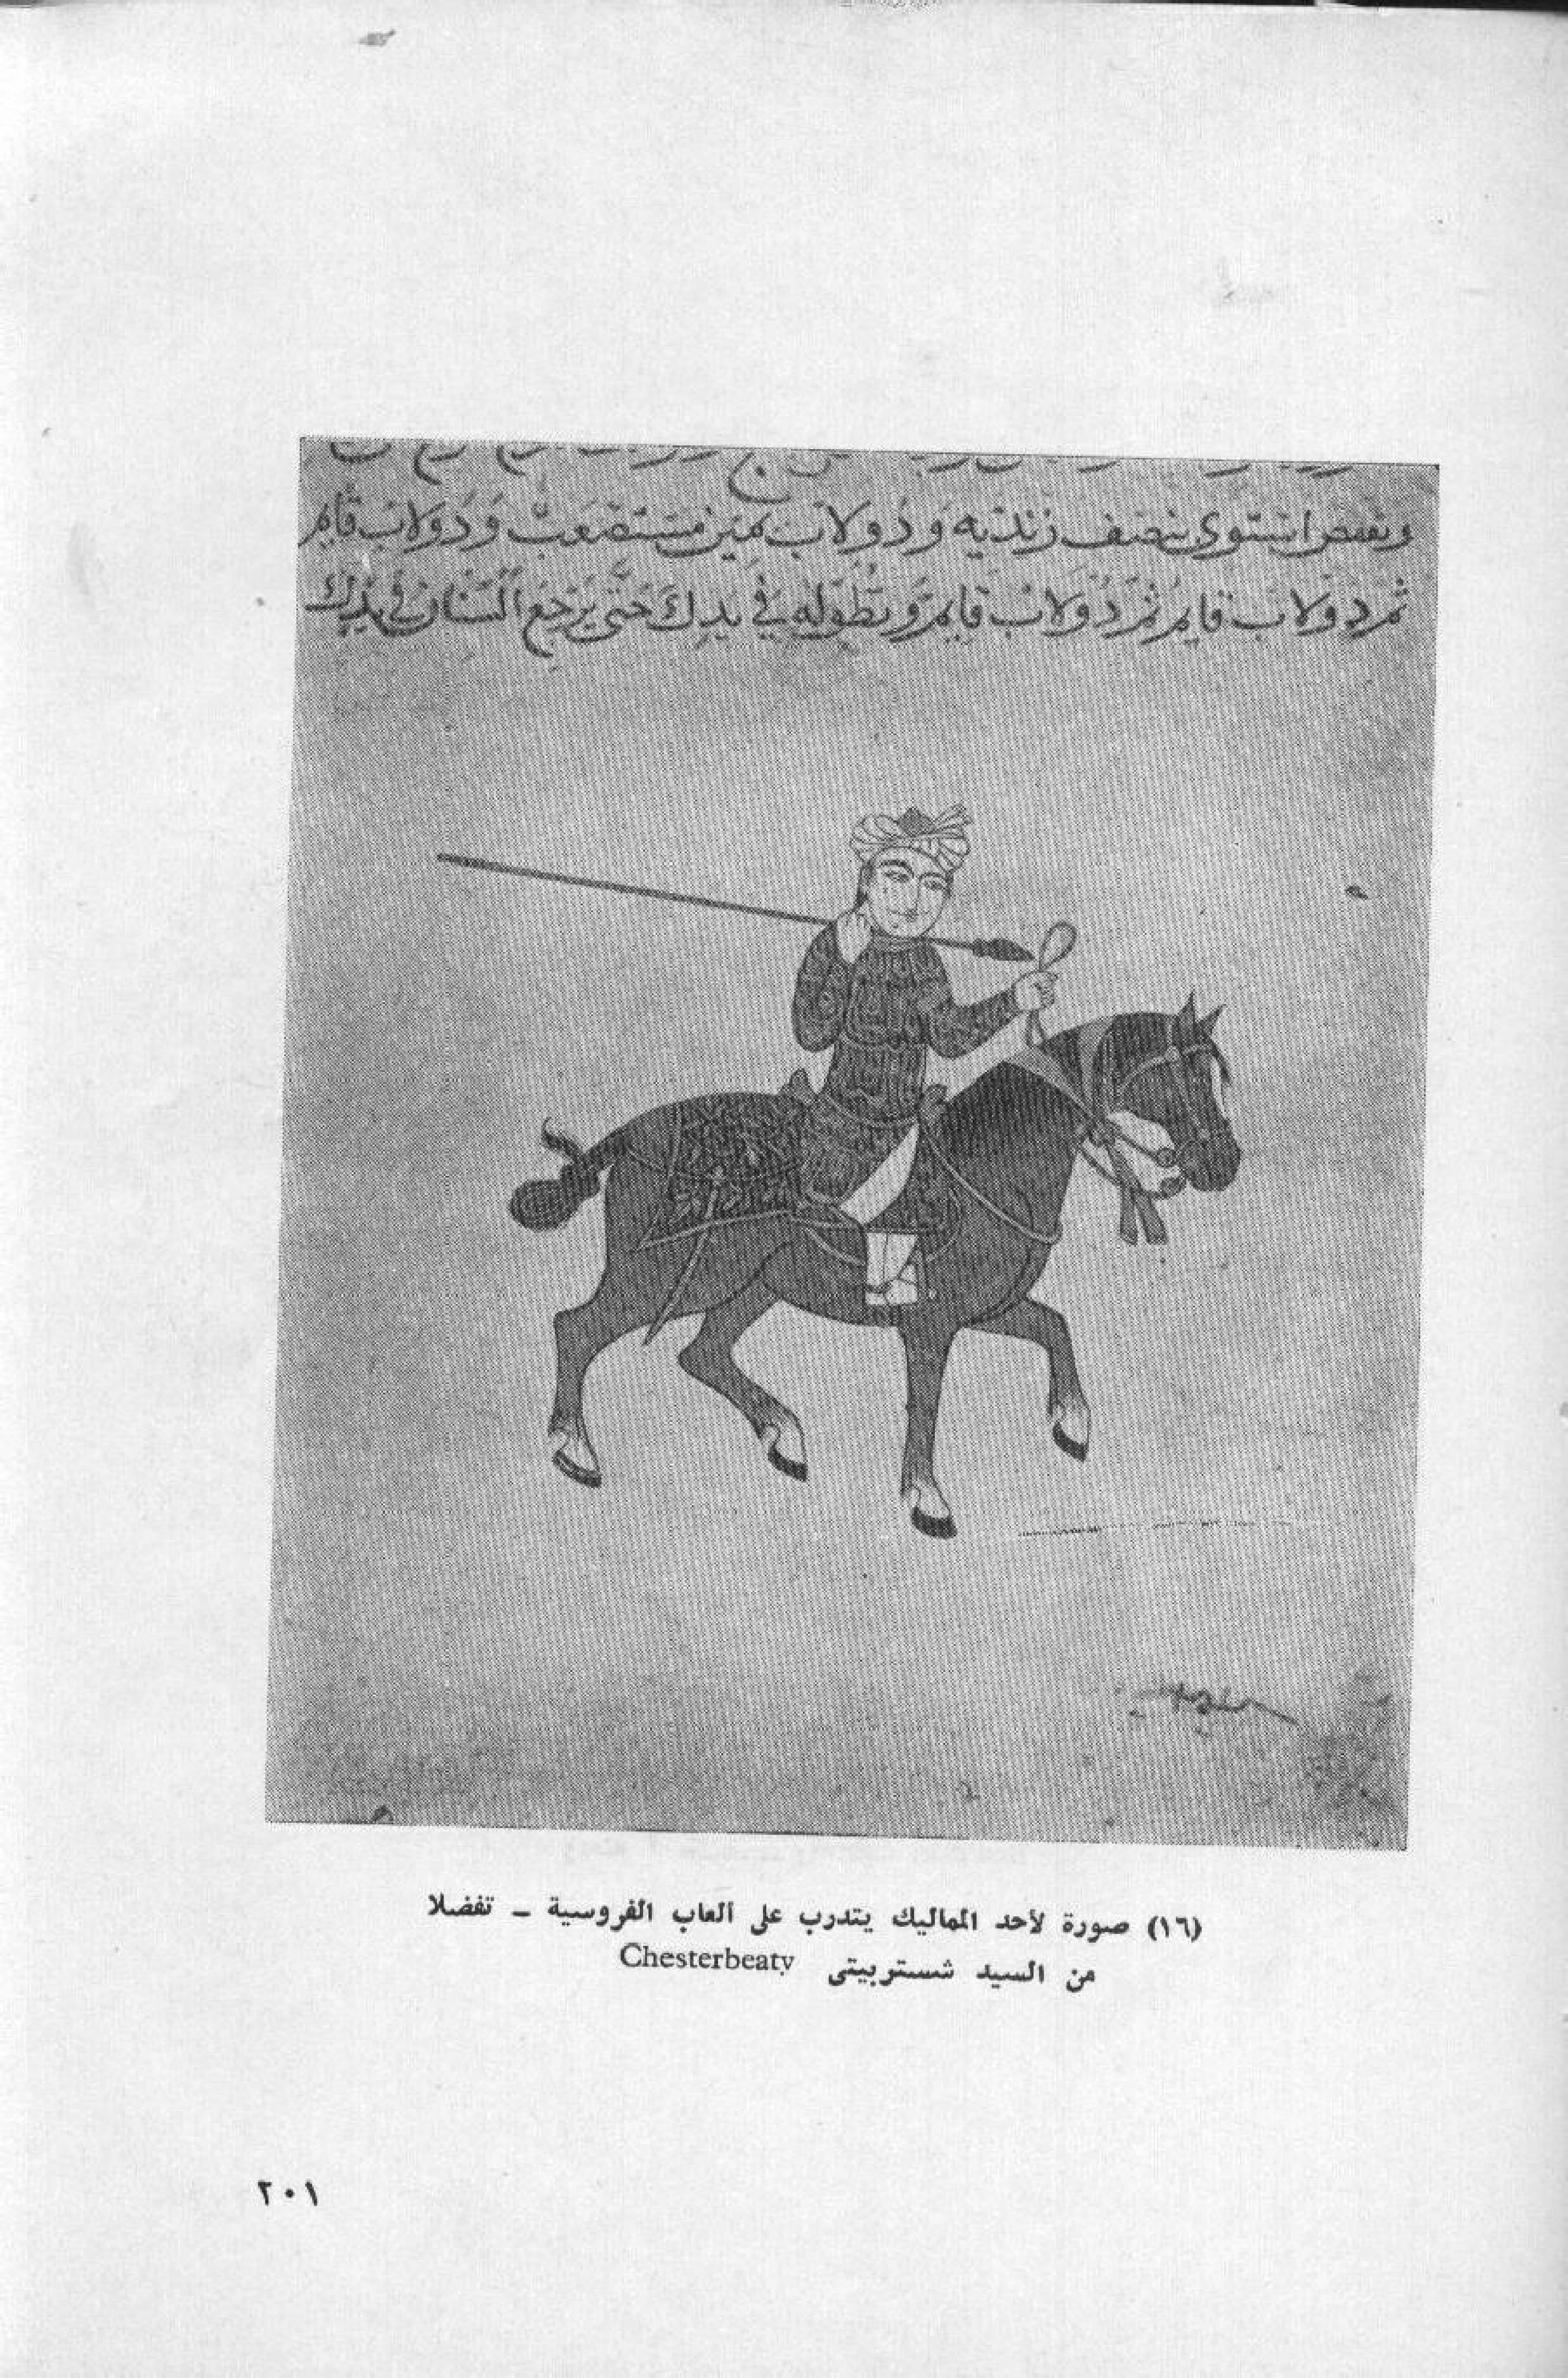 بنصف زنديه و دولاب مستصعب و دولاب قايم
ثم دولاب قايم ثم دولاب قايم و تطوله في يدك حتى يرجع السنان في يدك
(١٦) صورة لأحد المماليك يتدرب على ألعاب الفروسية ــ تفضلا
من السيد شستربيتى Chesterbeaty
٢٠١